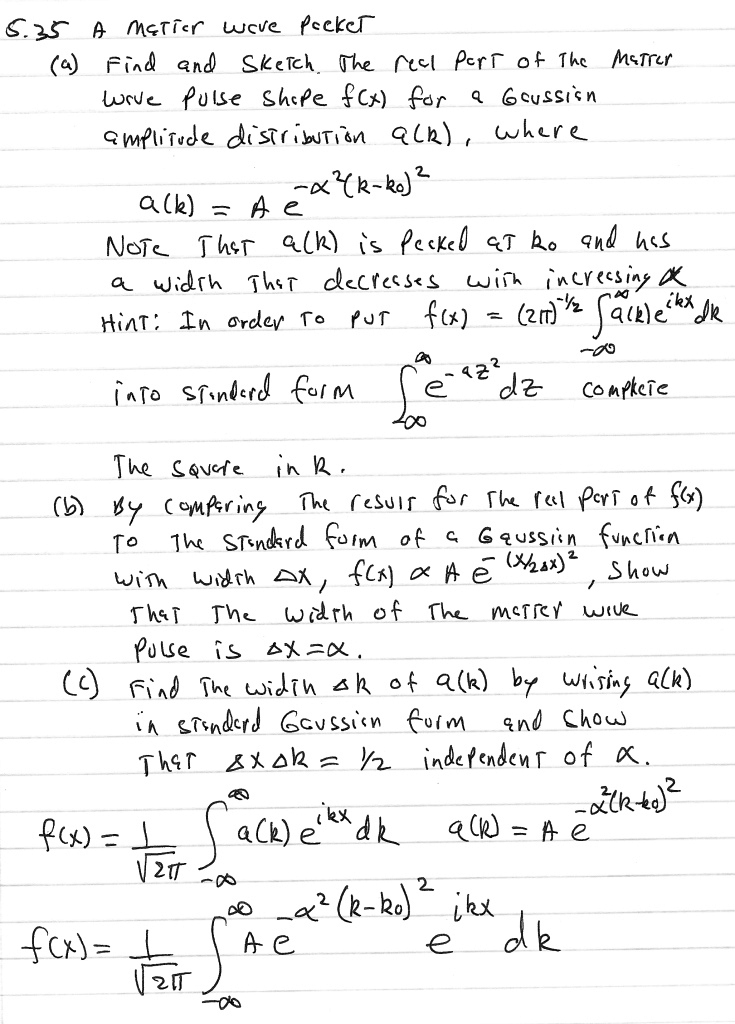 5.35 A Matter wave Packet
(a) Find and Sketch. The real Part of The Matter
wave Pulse Shape f(x) for a Gaussian
amplitude distribution a(k), where
a(k) = A e^{-α²(k-k₀)²}
Note That a(k) is Peaked at k₀ and has
a width That decreases with increasing α
Hint: In order To PUT f(x) = (2π)^{-1/2} ∫_{-∞}^{∞} a(k)e^{ikx} dk
into standard form ∫_{-∞}^{∞} e^{-az²} dz complete
The square in k.
(b) By comparing The result for The real part of f(x)
To The Standard form of a Gaussian function
with width Δx, f(x) ∝ A e^{-(x/2Δx)²}, Show
That The width of The matter wave
Pulse is Δx = α.
(c) Find The width Δk of a(k) by writing a(k)
in standard Gaussian form and Show
That ΔxΔk = 1/2 independent of α.
f(x) = 1/√2π ∫_{-∞}^{∞} a(k) e^{ikx} dk a(k) = A e^{-α²(k-k₀)²}
f(x) = 1/√2π ∫_{-∞}^{∞} A e^{-α²(k-k₀)²} e^{ikx} dk